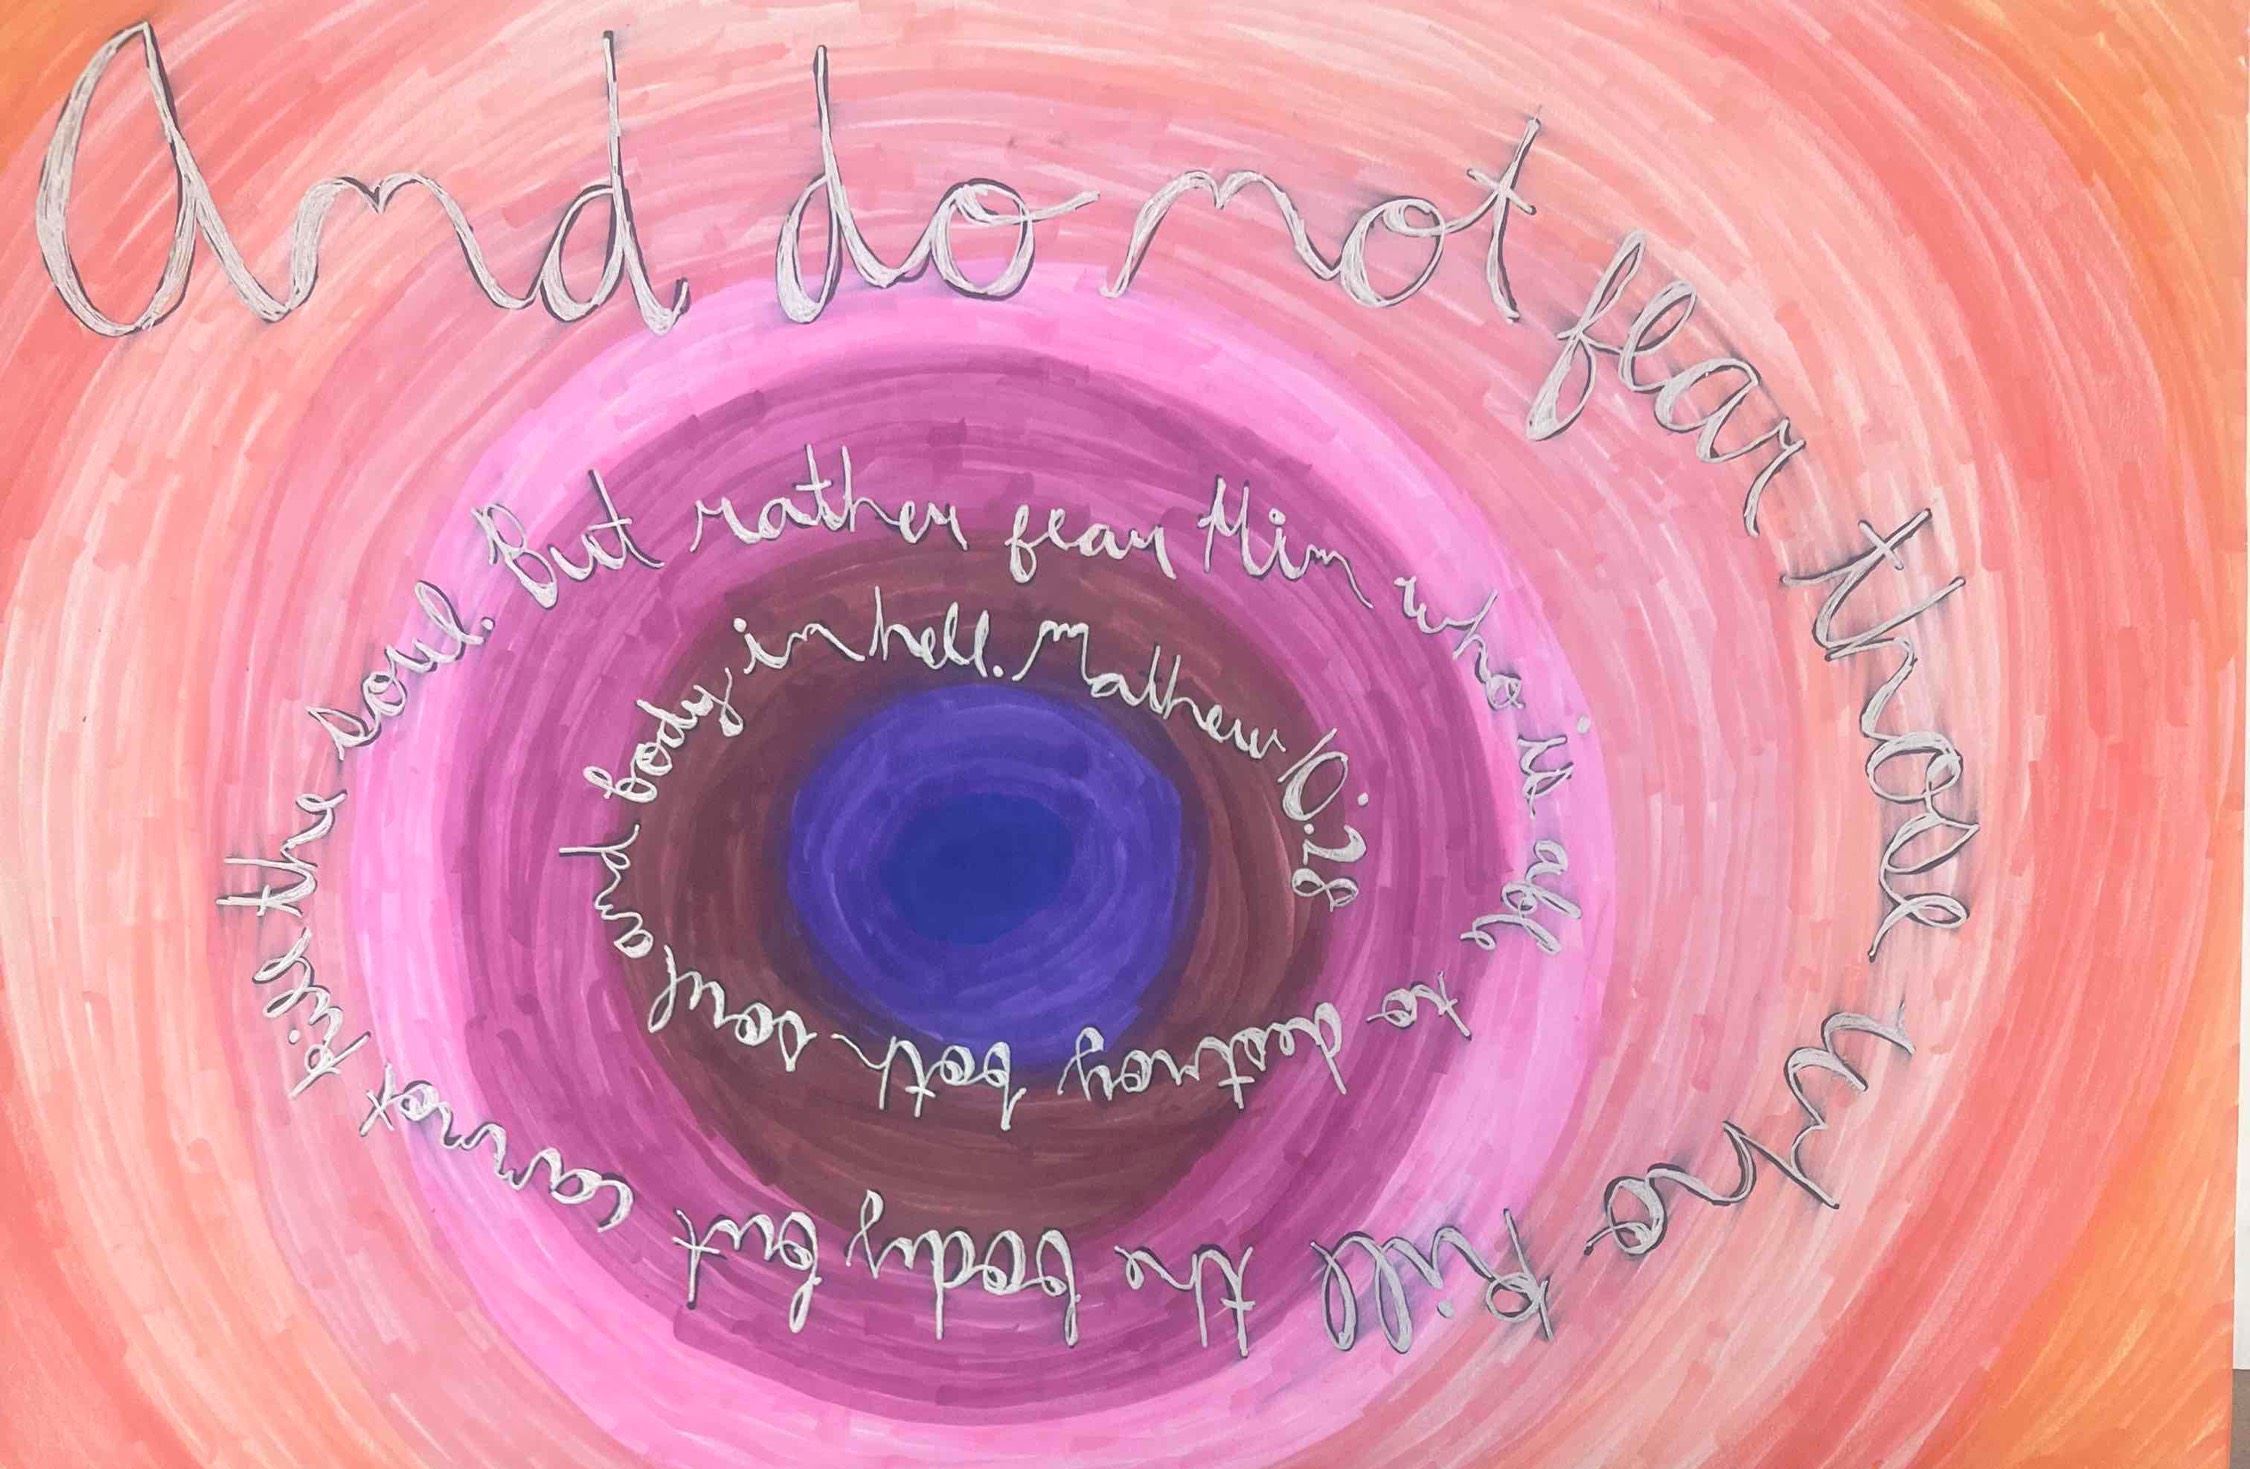 And do not fear those who kill the body but cannot kill the soul. But rather fear Him who is able to destroy both soul and body in hell. Matthew 10:28